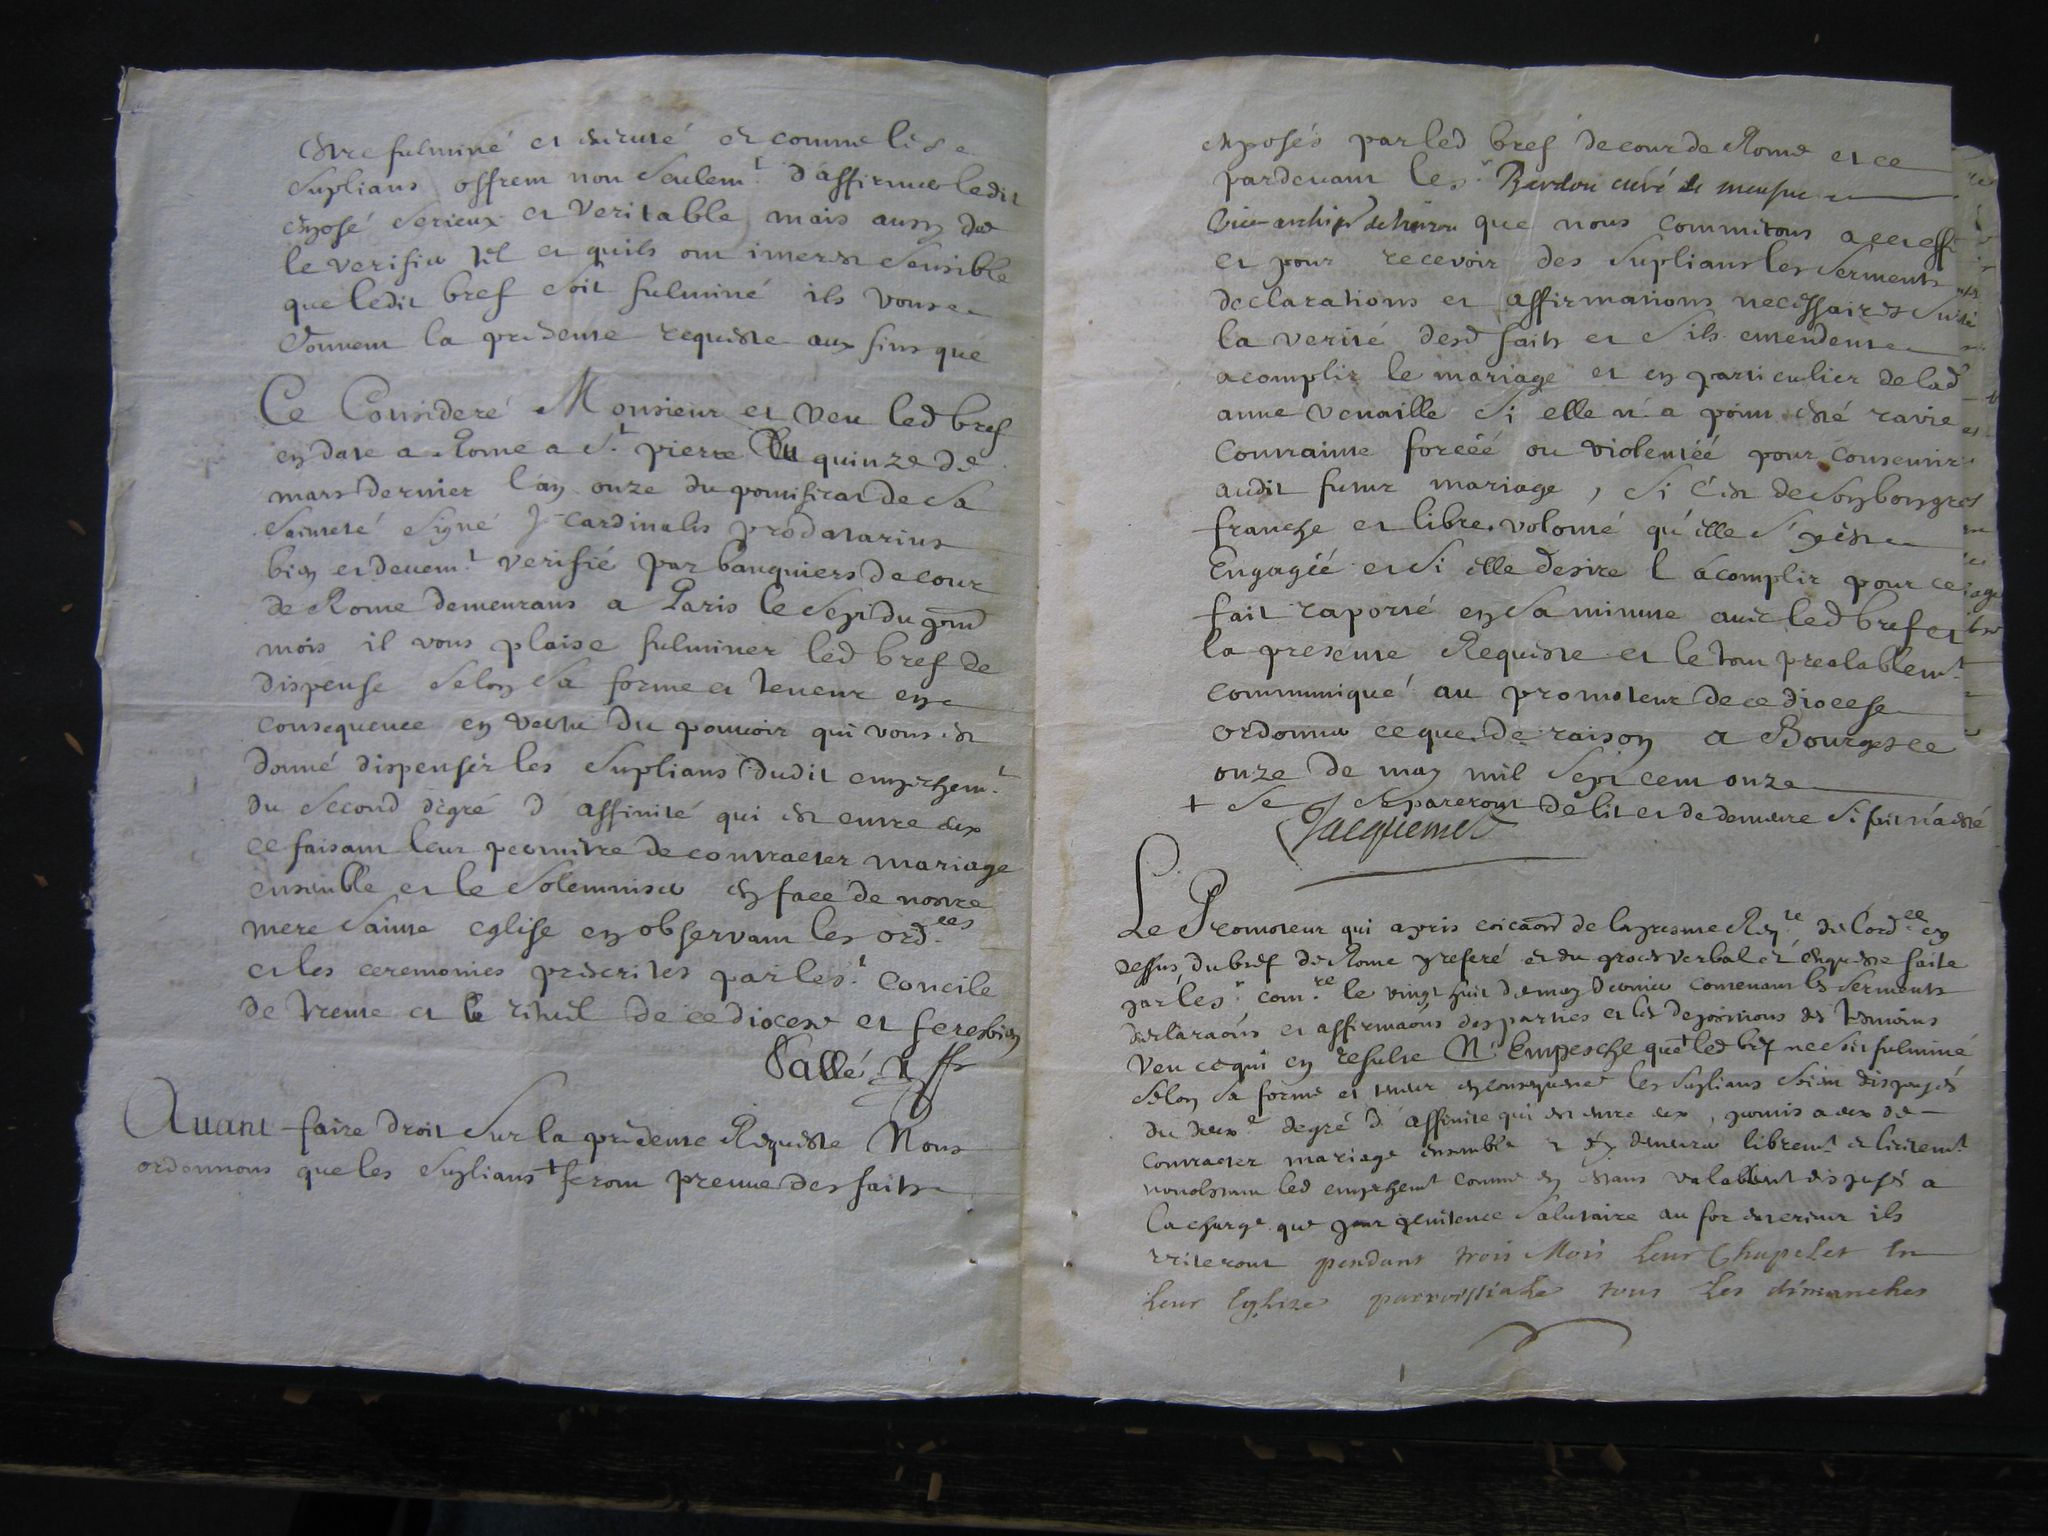 estre fulminé et executé et comme les
Suplians offrent non Seulemt. d'affirmer ledit
exposé Serieux et Veritable mais aussy de
le verifier tel et quils ont interest Sensible
que ledit bref Soit fulminé ils vous
donnent la presente requeste aux fins que
Ce Consideré Monsieur et veu led bref
en date a Rome a St. pierre du quinze de
mars dernier l'an onze du pontificat de Sa
Sainteté Signé J Cardinalis prodatarius
bien et deuemt. verifié par banquiers de cour
de Rome demeurans a Paris le Sept du pnt
mois il vous plaise fulminer led bref de
dispense Selon Sa forme et teneur en
consequence en vertu du pouvoir qui vous est
donné dispenser les Suplians dudit empeschemt.
du Second degré d'affinité qui est entre eux
ce faisant leur permettre de contracter mariage
ensemble et le Solemniser en face de nostre
mere Sainte eglise en observant les ordces
et les ceremonies prescrites par le St. Concile
de trente et le rituel de ce diocese et feres bien
Vallé
Avant faire droit Sur la presente Requeste Nous
ordonnons que les Suplians + feront preuve des faits
exposés par led bref de cour de Rome et ce
pardevant le Sr. curé de
vice archip. de que nous commitons a cet effet
et pour recevoir des Suplians les Serments
declarations et affirmations necessaires Sur
la verité desd faits et S'ils entendent
acomplir le mariage et en particulier de lad
anne venaille Si elle n'a point esté ravie
contrainte forcéé ou violentéé pour consentir
audit futur mariage, Si c'est de Son bon gré
franche et libre volonté qu'elle S'y est
Engagéé et Si elle desire l'acomplir pour ce
fait raporté en Sa minutte avec led bref et
la presente Requeste et le tout prealablemt.
communiqué au promoteur de ce diocese
ordonner ce que de raison a Bourges ce
onze de may mil Sept cent onze
+ Se Separeront de lit et de demeure Si fait n'a esté
Jacquemet
Le Promoteur qui a pris coicaõn de la presente Reqte. de l'ordce. cy
dessus, du bref de Rome preferé et du proces verbal et enqueste faite
par le Sr. comre. le vingt huit de may dernier contenant les Serments
declaraõns et affirmaõns des parties et les depositions des temoins
Veu ce qui en resulte N'Empesche que led bref ne Soit fulminé
Selon Sa forme et teneur en consequence les Suplians Soient dispensés
du deuxe degré d'affinité qui est entre eux, permis a eux de
contracter mariage ensemble et y demeurer libremt. et licitemt.
nonobstant led empeschemt comme en estans valablemt dispensés a
la charge que pour penitence Salutaire au for exterieur ils
reciteront pendant trois Mois leur Chapelet En
leur Eglize parroissialle tous les dimanches